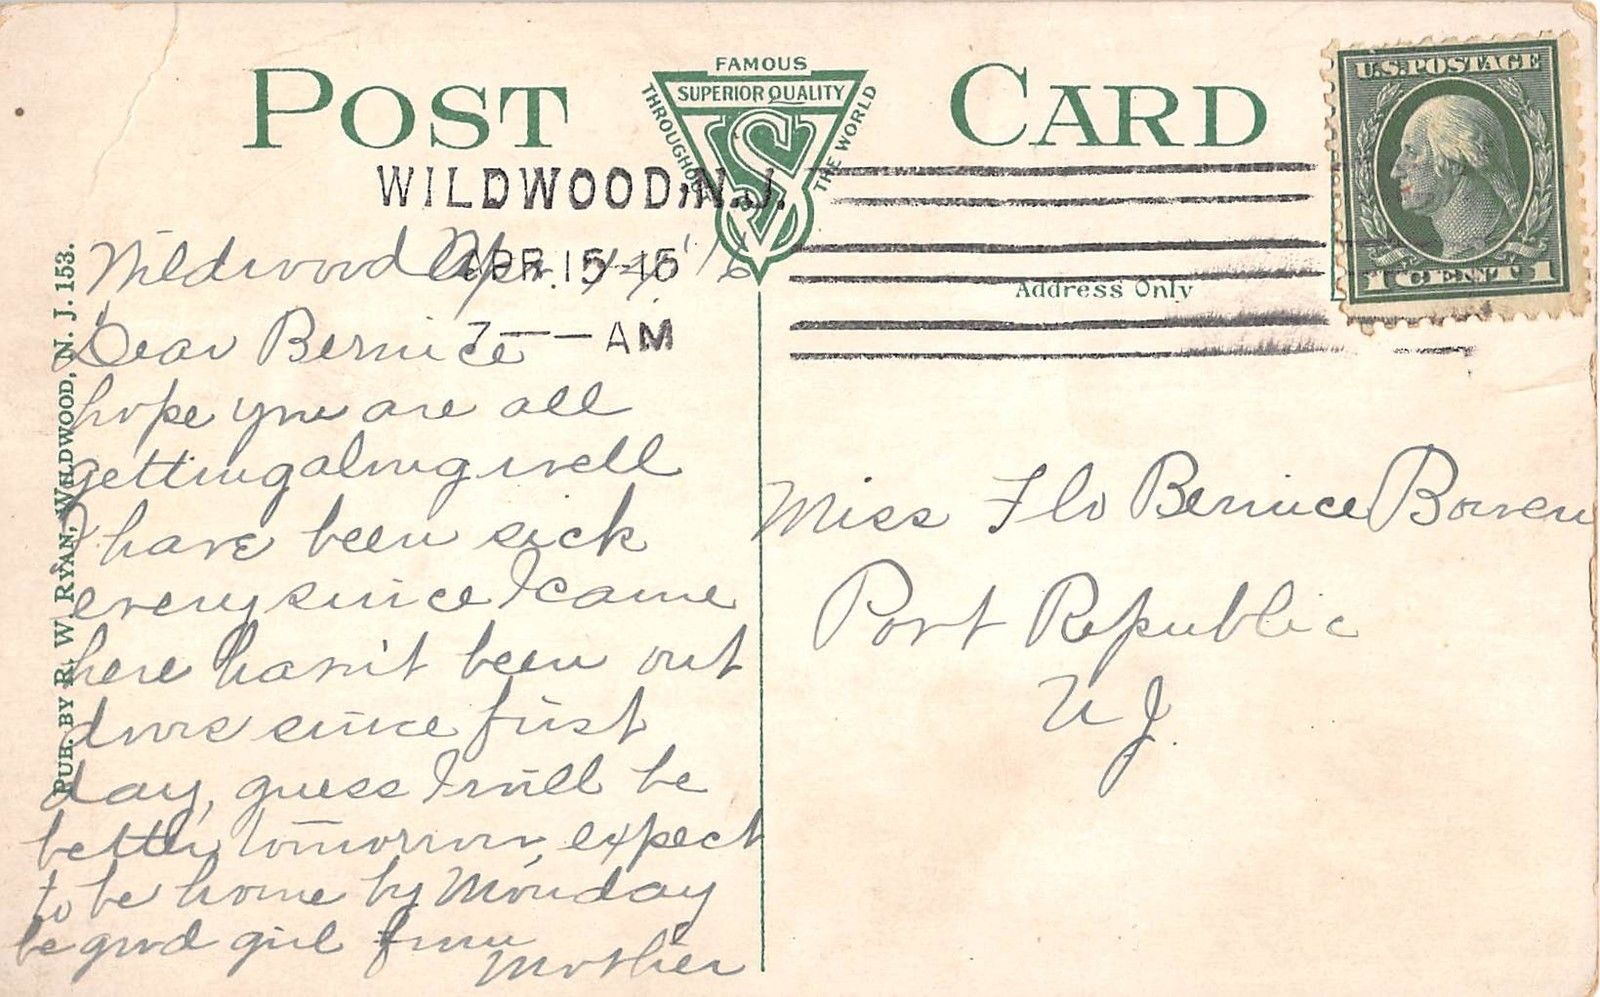 POST CARD
FAMOUS
THROUGHOUT THE WORLD
SUPERIOR QUALITY
S
U.S. POSTAGE
1 CENT 1
WILDWOOD, N.J.
APR 15
7 — AM
Address Only
PUB. BY R. W. RYAN, WILDWOOD, N. J. 153.
Wildwood Apr. '16
Dear Bernice
hope you are all
getting along well
I have been sick
every since I came
here hasn't been out
doors since first
day, guess I will be
better tomorrow, expect
to be home by Monday
be good girl from
Mother
Miss Flo Bernice Bowen
Port Republic
N J.